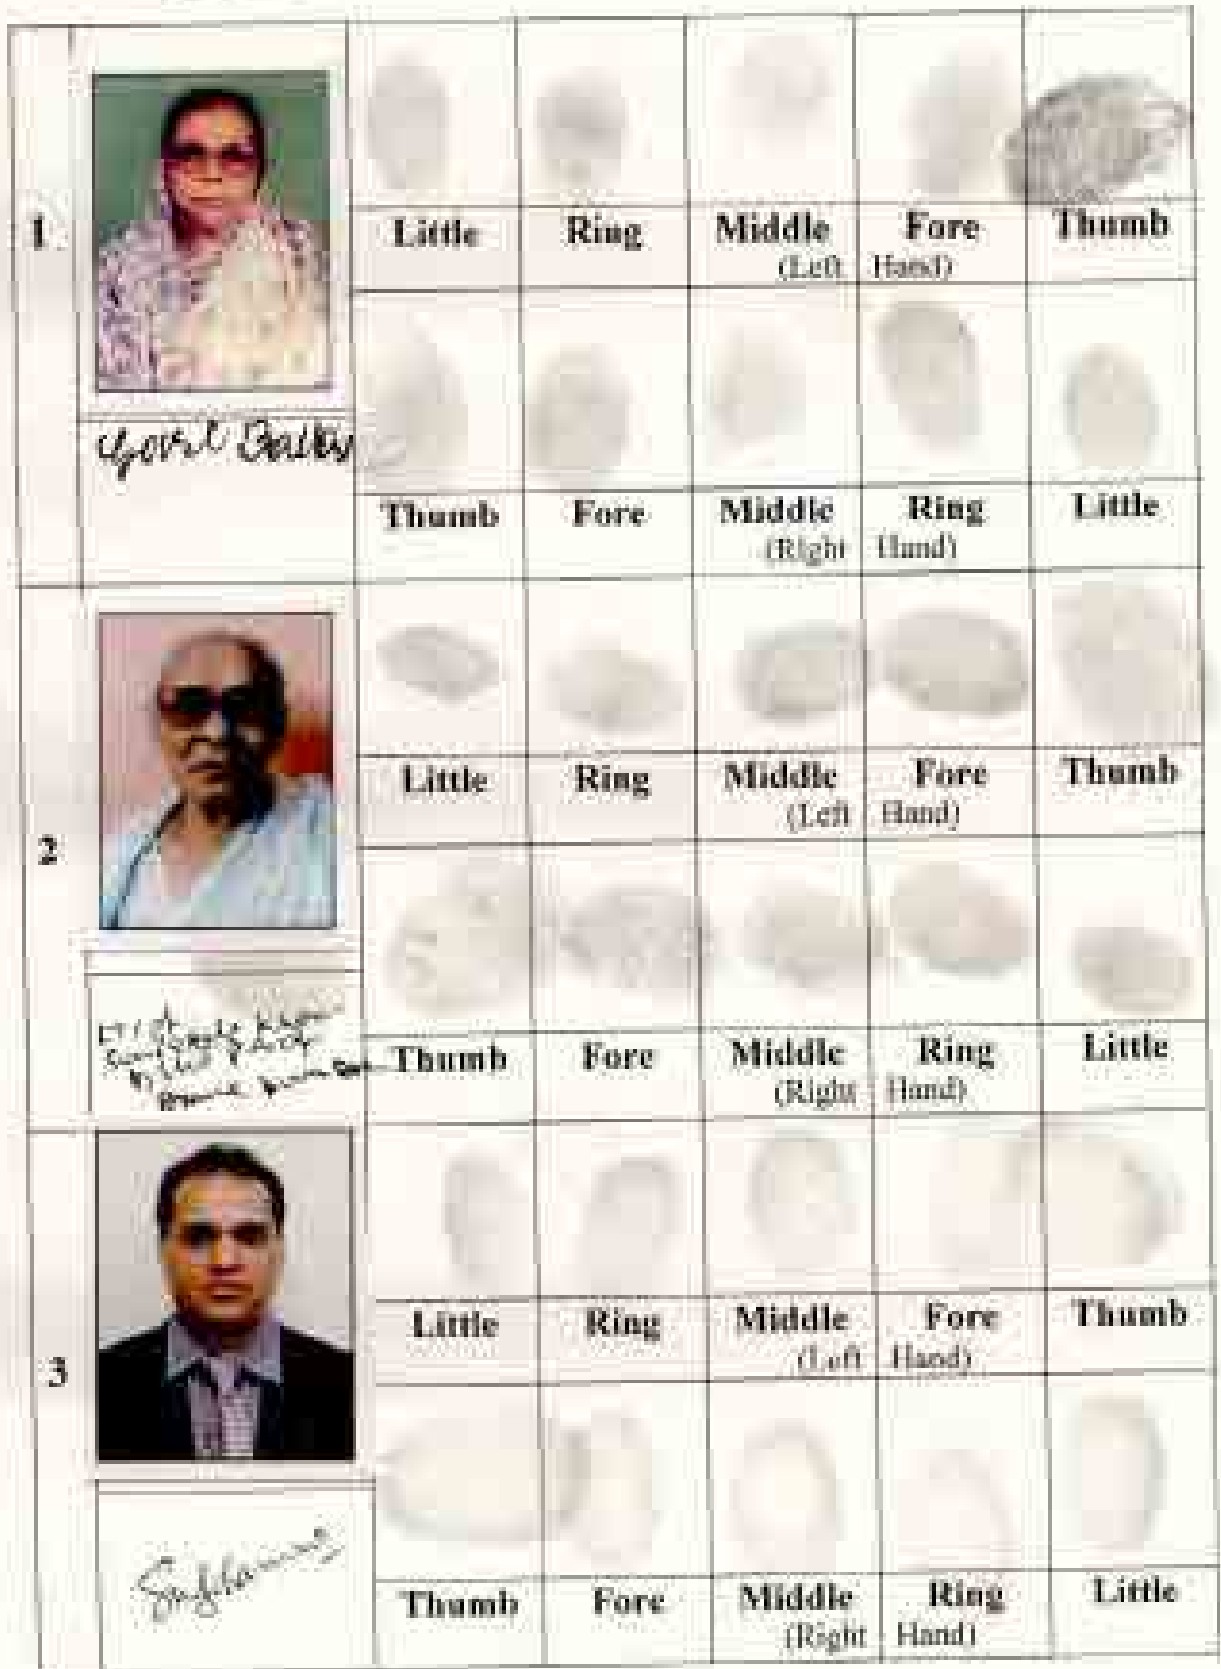 1
Little Ring Middle Fore Thumb
(Left Hand)
Thumb Fore Middle Ring Little
(Right Hand)
2
Little Ring Middle Fore Thumb
(Left Hand)
Thumb Fore Middle Ring Little
(Right Hand)
3
Little Ring Middle Fore Thumb
(Left Hand)
Thumb Fore Middle Ring Little
(Right Hand)